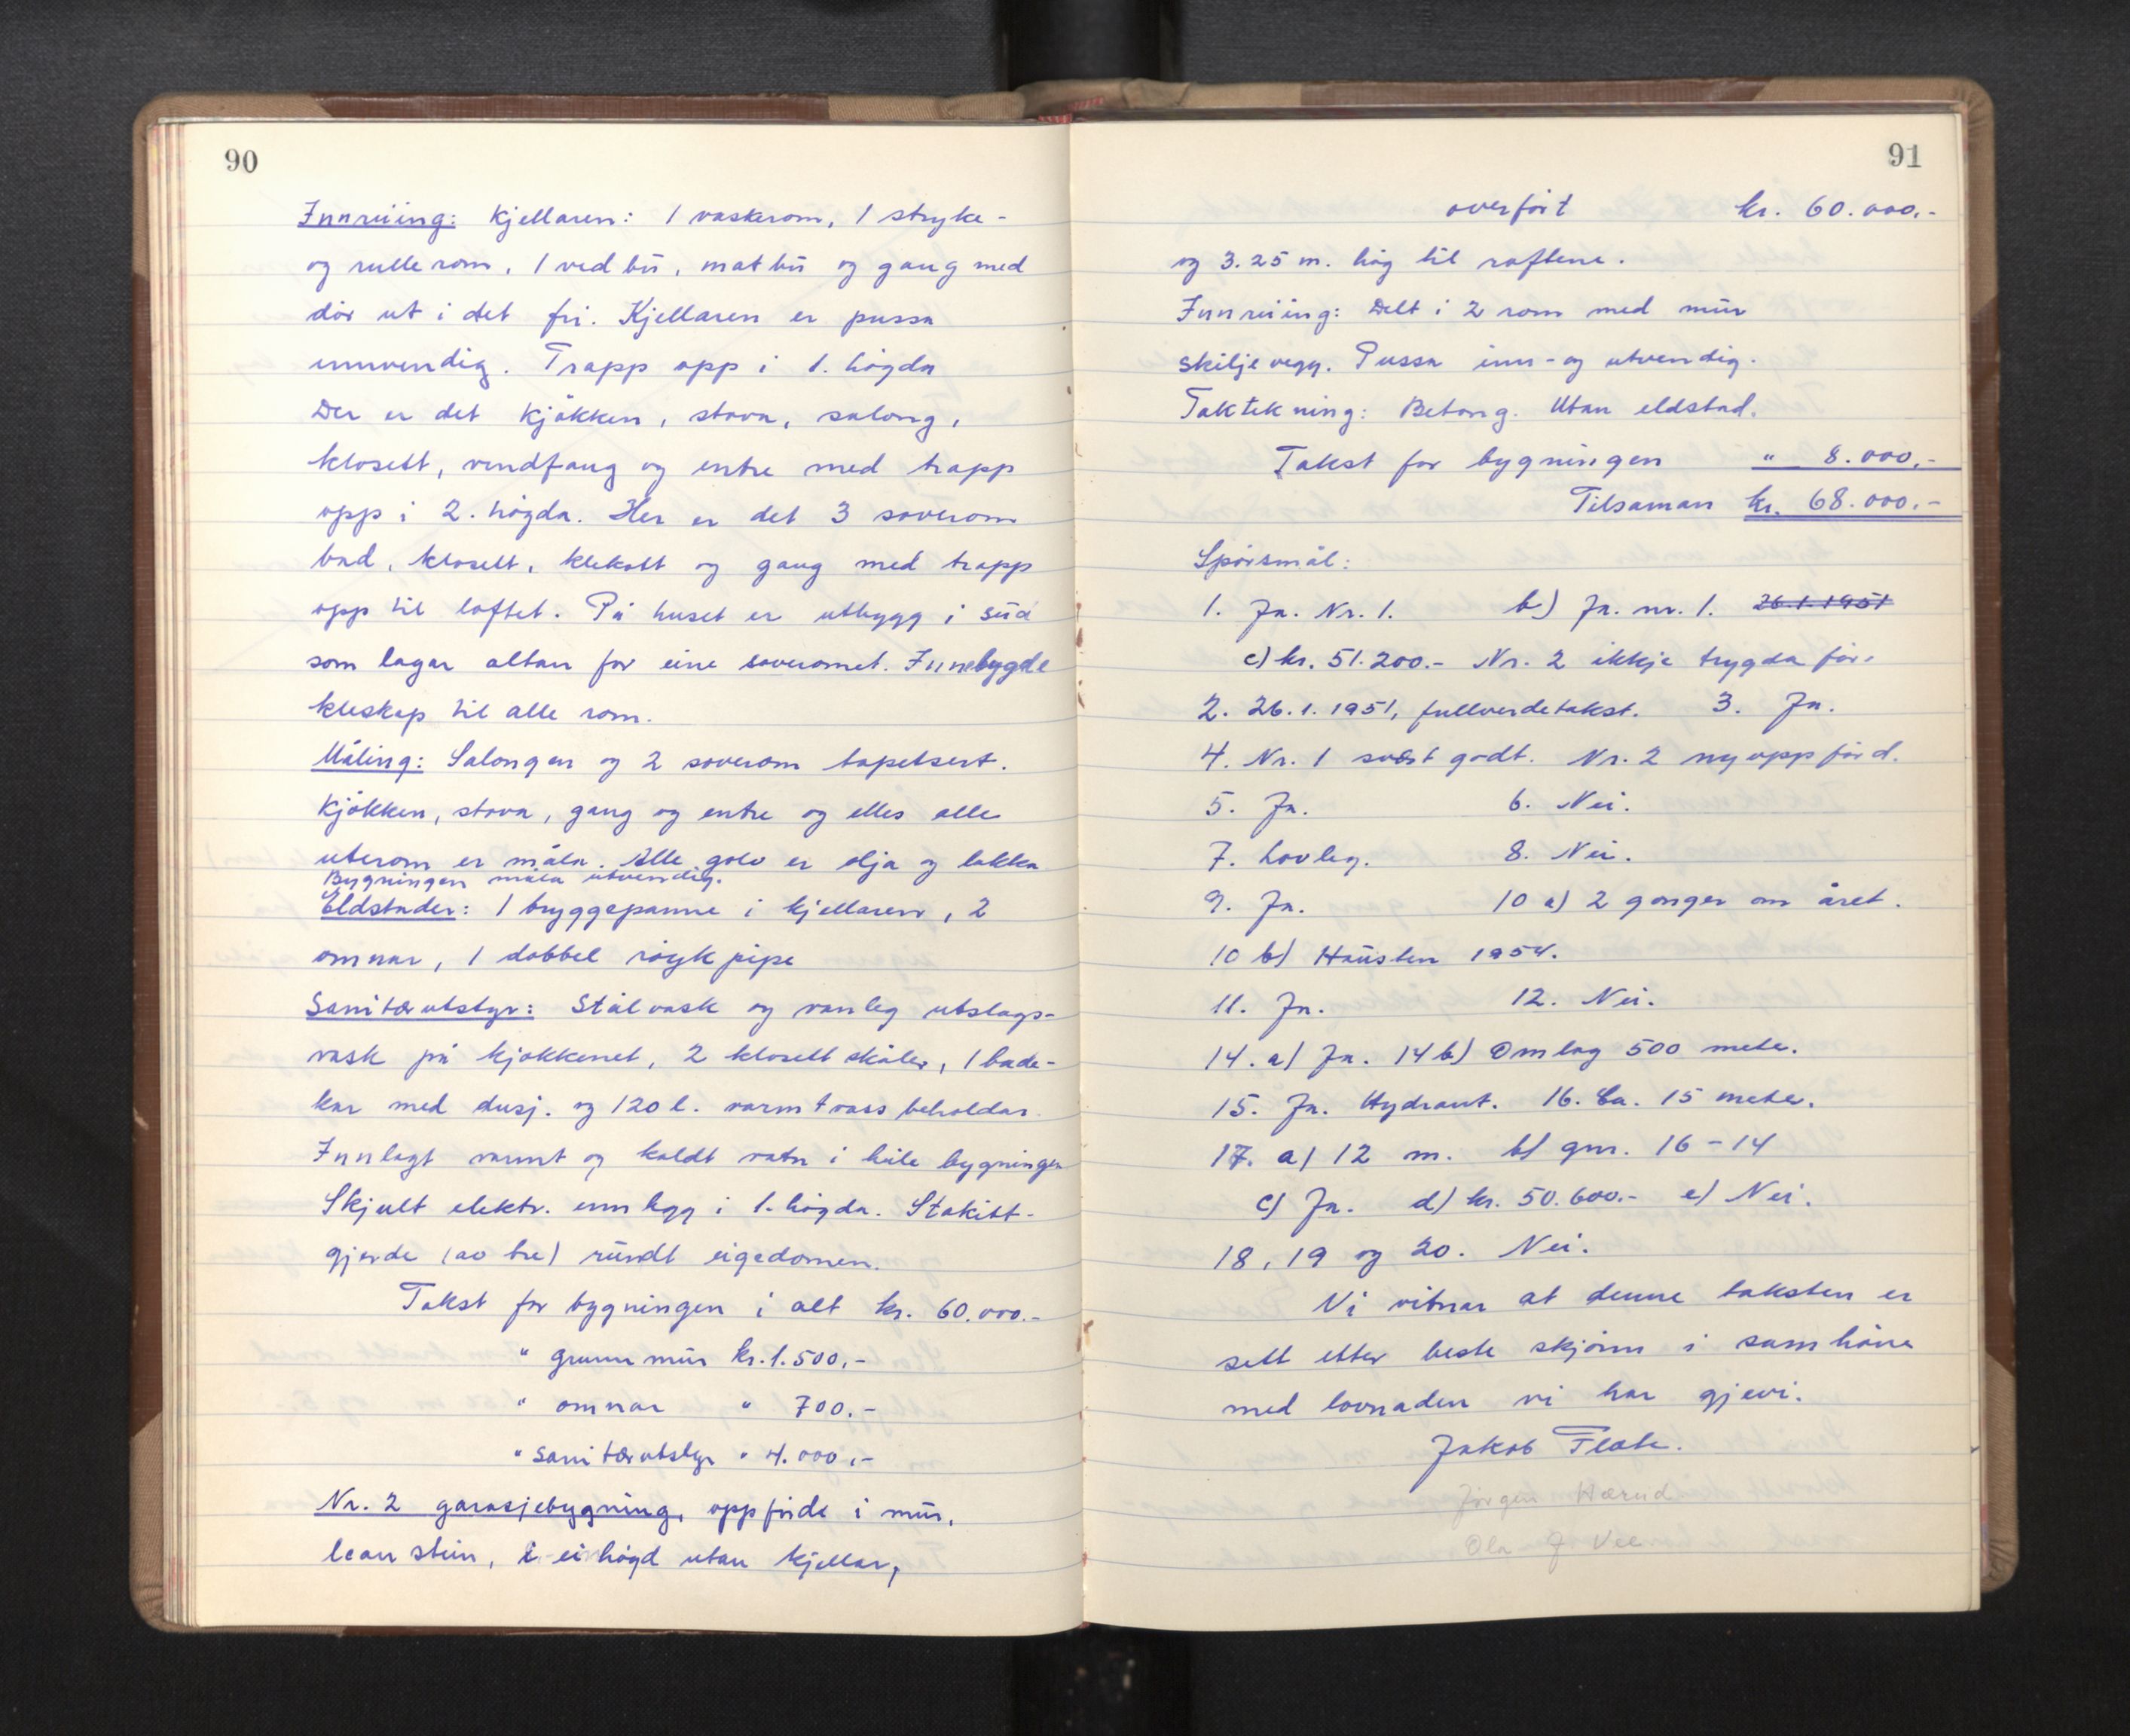 90
Innreiing: Kjellaren: 1 vaskerom, 1 stryke-
og rullerom, 1 vedbu, matbu og gang med
dør ut i det fri. Kjellaren er pussa
innvendig. Trapp opp i 1. høgda
Der er det kjøkken, stova, salong,
klosett, vindfang og entre med trapp
opp i 2. høgda. Her er det 3 soverom
bad, klosett, klekott og gang med trapp
opp til loftet. På huset er utbygg i süd
som lagar altan for eine soveromet. Innebygde
kleskap til alle rom.
Måling: Salongen og 2 soverom tapetsert.
Kjøkken, stova, gang og entre og elles alle
uterom er måla. Alle golv er olja og lakka
Bygningen måla utvendig.
Eldstader: 1 bryggepanne i kjellaren, 2
omnar, 1 dobbel røykpipe
Sanitærutstyr: Stålvask og vanleg utslags-
vask på kjøkkenet, 2 klosettskåler, 1 bade-
kar med dusj. og 120 l. varmtvassbeholdar.
Innlagt varmt og kaldt vatn i heile bygningen
Skjult elektr. innlegg i 1. høgda. Stakitt-
gjerde (av tre) rundt eigedomen.
Takst for bygningen i alt kr. 60.000.-
" grunnmur kr. 1.500,-
" omnar " 700.-
" sanitærutstyr " 4.000,-
Nr. 2 garasjebygning, oppførde i mur,
lean stein, i ei høgd utan kjellar,
91
overført kr. 60.000.-
og 3.25 m. høg til raftene.
Innreiing: Delt i 2 rom med mur
skiljevegg. Pussa inn- og utvendig.
Taktekning: Betong. Utan eldstad.
Takst for bygningen " 8.000,-
Tilsaman kr. 68.000.-
Spørsmål:
1. Ja. Nr. 1. b) Ja. nr. 1. 26.1.1951
c) kr. 51.200.- Nr. 2 ikkje trygda før.
2. 26.1.1951, fullverdetakst. 3. Ja.
4. Nr. 1 svært godt. Nr. 2 nyoppførd.
5. Ja. 6. Nei.
7. Lovleg. 8. Nei.
9. Ja. 10 a) 2 gonger om året.
10 b) Hausten 1954.
11. Ja. 12. Nei.
14. a) Ja. 14 b) Omlag 500 meter.
15. Ja. Hydrant. 16. Ca. 15 meter.
17. a) 12 m. b) gnr. 16-14
c) Ja. d) kr. 50.600.- e) Nei.
18, 19 og 20. Nei.
Vi vitnar at denne taksten er
sett etter beste skjønn i samhøve
med lovnaden vi har gjevi.
Jakob Flåte.
Jørgen Hærud
Ola J Vee